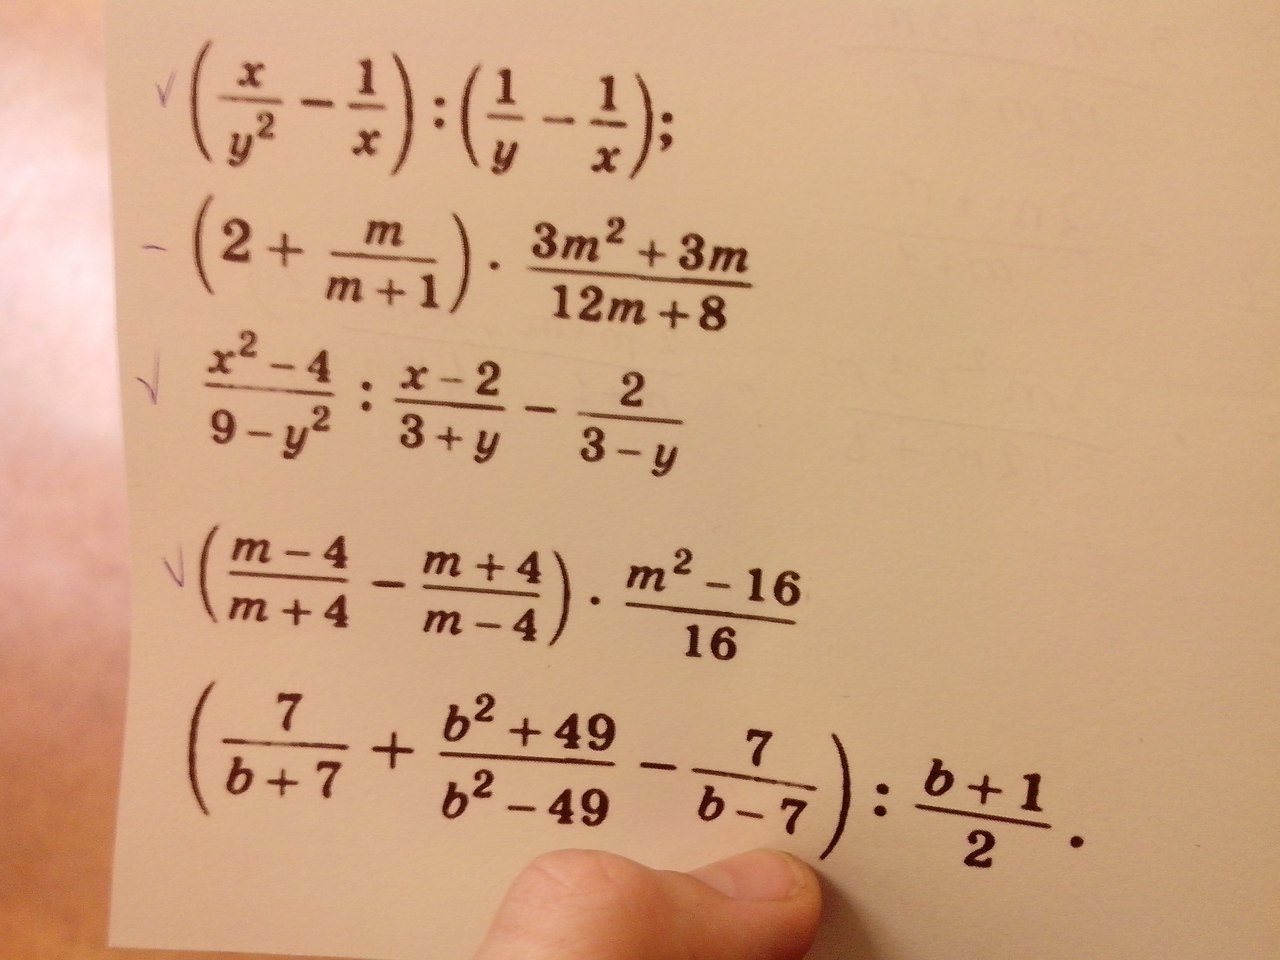 √ (x/y² − 1/x) : (1/y − 1/x);
− (2 + m/(m + 1)) · (3m² + 3m)/(12m + 8)
√ (x² − 4)/(9 − y²) : (x − 2)/(3 + y) − 2/(3 − y)
√ ((m − 4)/(m + 4) − (m + 4)/(m − 4)) · (m² − 16)/16
(7/(b + 7) + (b² + 49)/(b² − 49) − 7/(b − 7)) : (b + 1)/2.